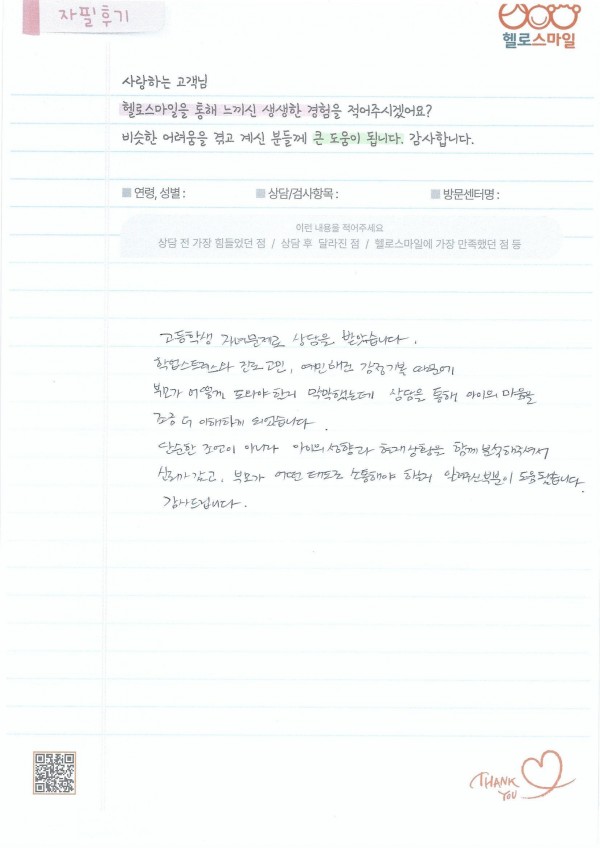 자필후기
헬로스마일
사랑하는 고객님
헬로스마일을 통해 느끼신 생생한 경험을 적어주시겠어요?
비슷한 어려움을 겪고 계신 분들께 큰 도움이 됩니다. 감사합니다.
연령, 성별 : 상담/검사항목 : 방문센터명 :
이런 내용을 적어주세요
상담 전 가장 힘들었던 점 / 상담 후 달라진 점 / 헬로스마일에 가장 만족했던 점 등
고등학생 자녀문제로 상담을 받았습니다.
학업스트레스와 진로고민, 예민해진 감정기복 때문에
부모가 어떻게 도와야 할지 막막했는데 상담을 통해 아이의 마음을
조금 더 이해하게 되었습니다.
단순한 조언이 아니라 아이의 성향과 현재상황을 함께 분석해주셔서
신뢰가 갔고, 부모가 어떤 태도로 소통해야 할지 알려주신부분이 도움됐습니다.
감사드립니다.
THANK
YOU